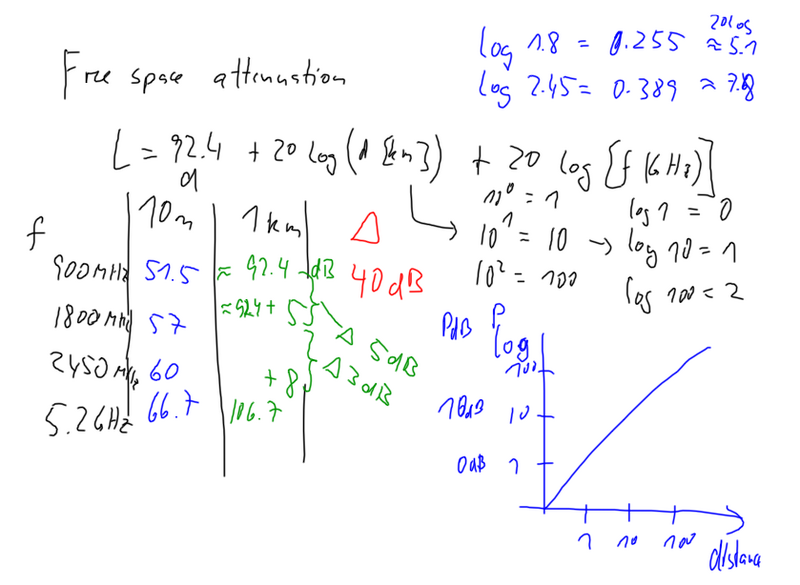 Free space attenuation
log 1.8 = 0.255 ≈ 5.1
20log
log 2.45 = 0.389 ≈ 7.8
L = 92.4 + 20 log (d [km]) + 20 log [f (GHz)]
d
f 10m 1km Δ
900MHz 51.5 ≈ 92.4 dB 40dB
1800MHz 57 ≈ 924 + 5 Δ 5dB
2450MHz 60 + 8 Δ 3dB
5.2GHz 66.7 106.7
10⁰ = 1 log 1 = 0
10¹ = 10 → log 10 = 1
10² = 100 log 100 = 2
PdB P
log
100
10dB 10
0dB 1
1 10 100
distance